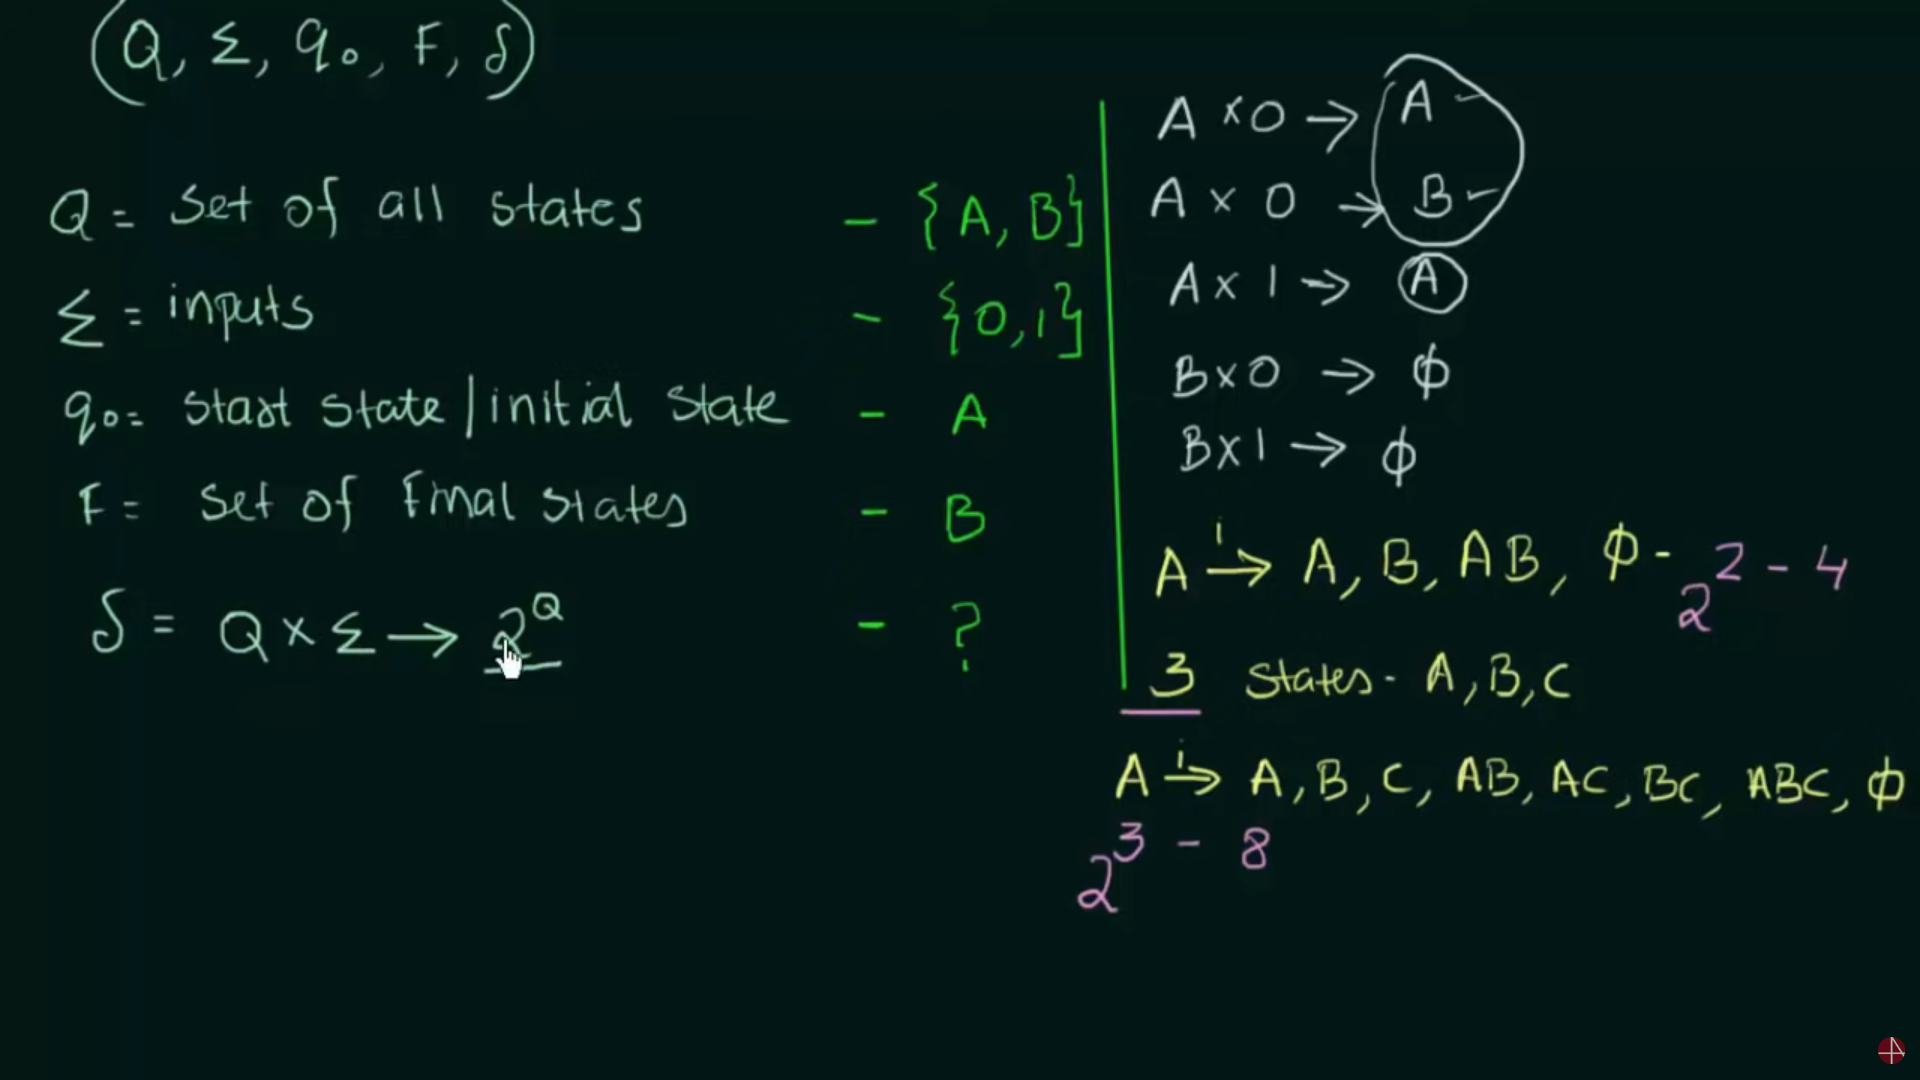 (Q, Σ, q₀, F, δ)
Q = Set of all states - {A, B}
Σ = inputs - {0,1}
q₀= start state/initial state - A
F = set of Final states - B
δ = Q × Σ → 2^Q - ?
A × 0 → A
A × 0 → B
A × 1 → A
B × 0 → ϕ
B × 1 → ϕ
A –i→ A, B, AB, ϕ - 2² - 4
3 states - A, B, C
A –i→ A, B, C, AB, AC, BC, ABC, ϕ
2³ - 8